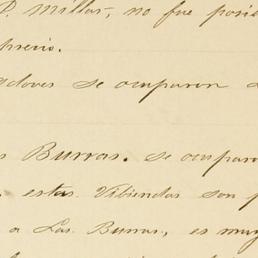 P. Millar, no fue posi
precio.
se ocuparon
Burras. se ocuparo
estas Vibiendas son p
a Las Burras, es muy